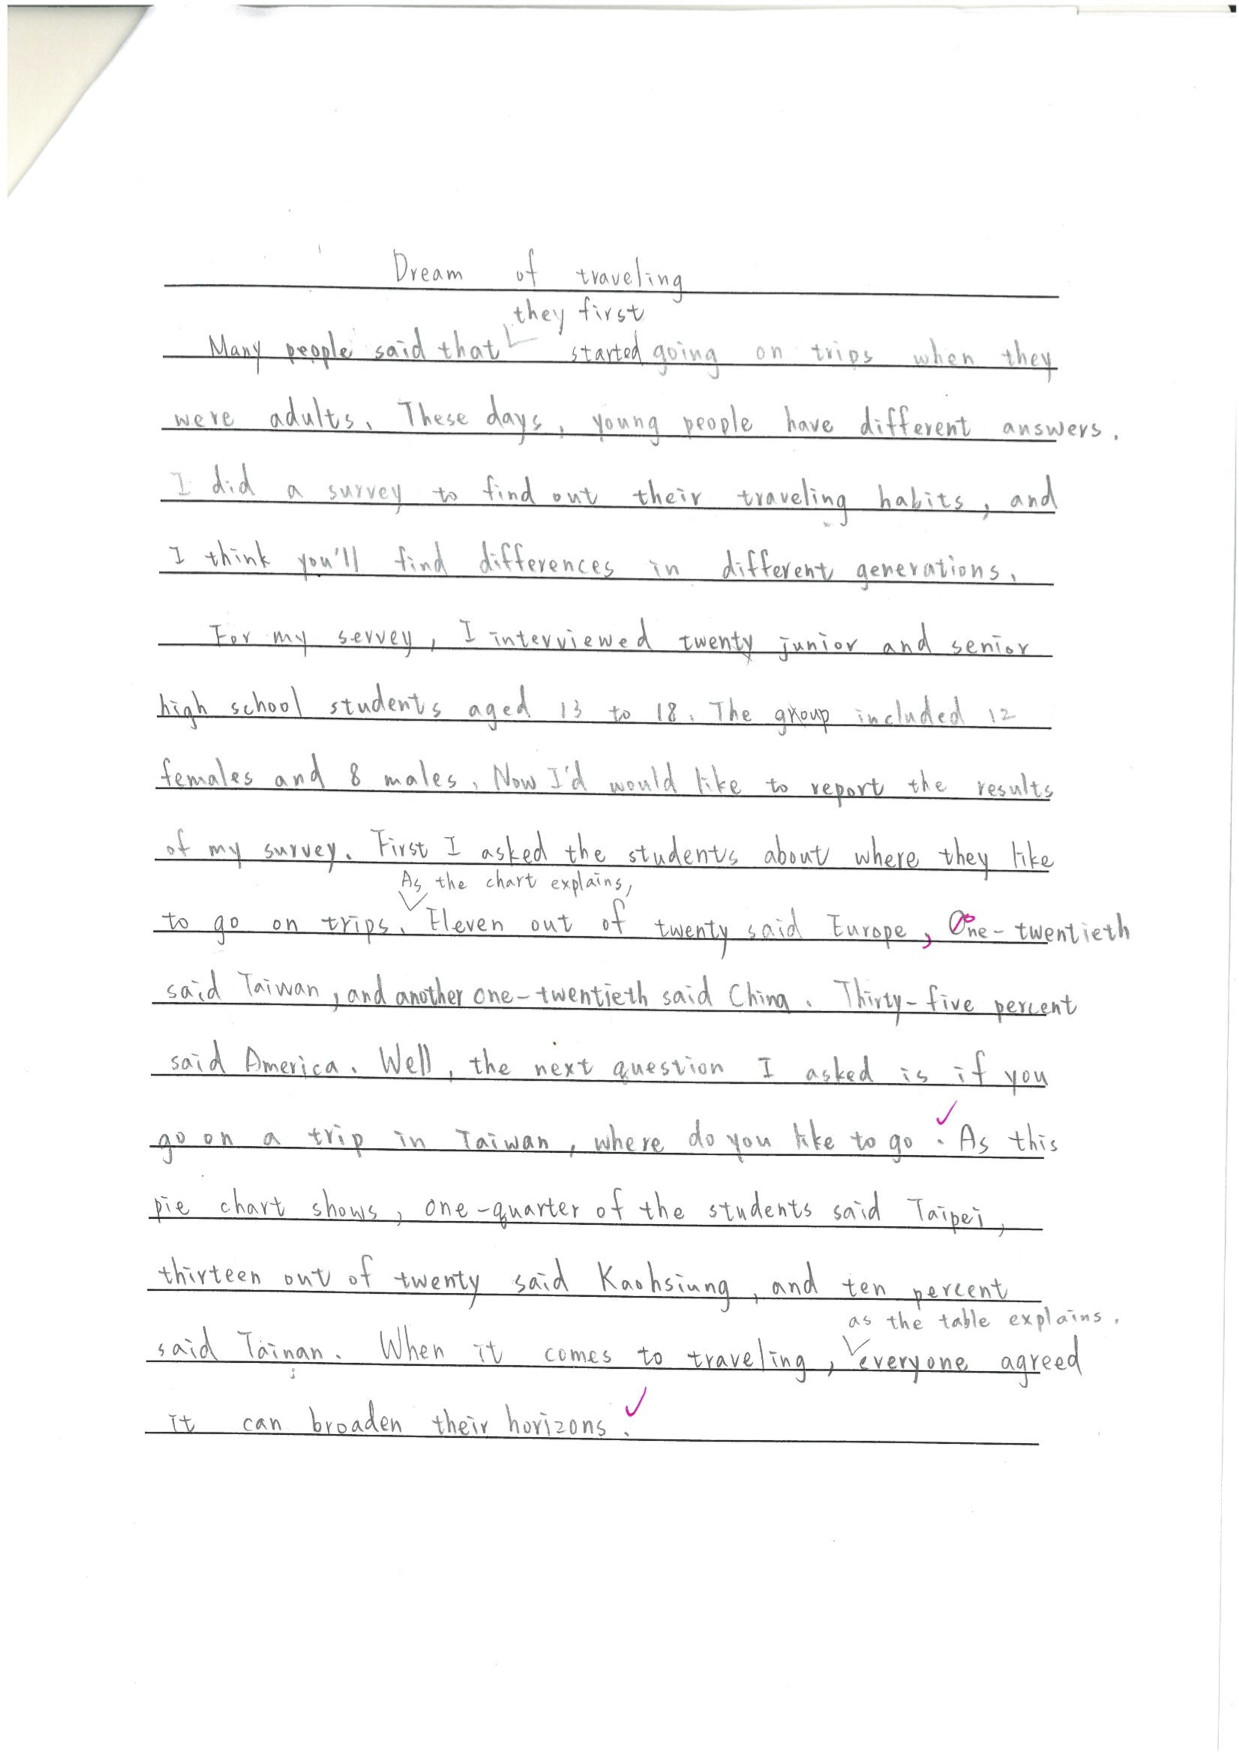 Dream of traveling
they first
Many people said that started going on trips when they
were adults. These days, young people have different answers.
I did a survey to find out their traveling habits, and
I think you'll find differences in different generations.
For my servey, I interviewed twenty junior and senior
high school students aged 13 to 18. The group included 12
females and 8 males. Now I'd would like to report the results
of my survey. First I asked the students about where they like
As the chart explains,
to go on trips. Eleven out of twenty said Europe, One-twentieth
said Taiwan, and another one-twentieth said China. Thirty-five percent
said America. Well, the next question I asked is if you
go on a trip in Taiwan, where do you like to go. As this
pie chart shows, one-quarter of the students said Taipei,
thirteen out of twenty said Kaohsiung, and ten percent
as the table explains.
said Tainan. When it comes to traveling, everyone agreed
it can broaden their horizons.